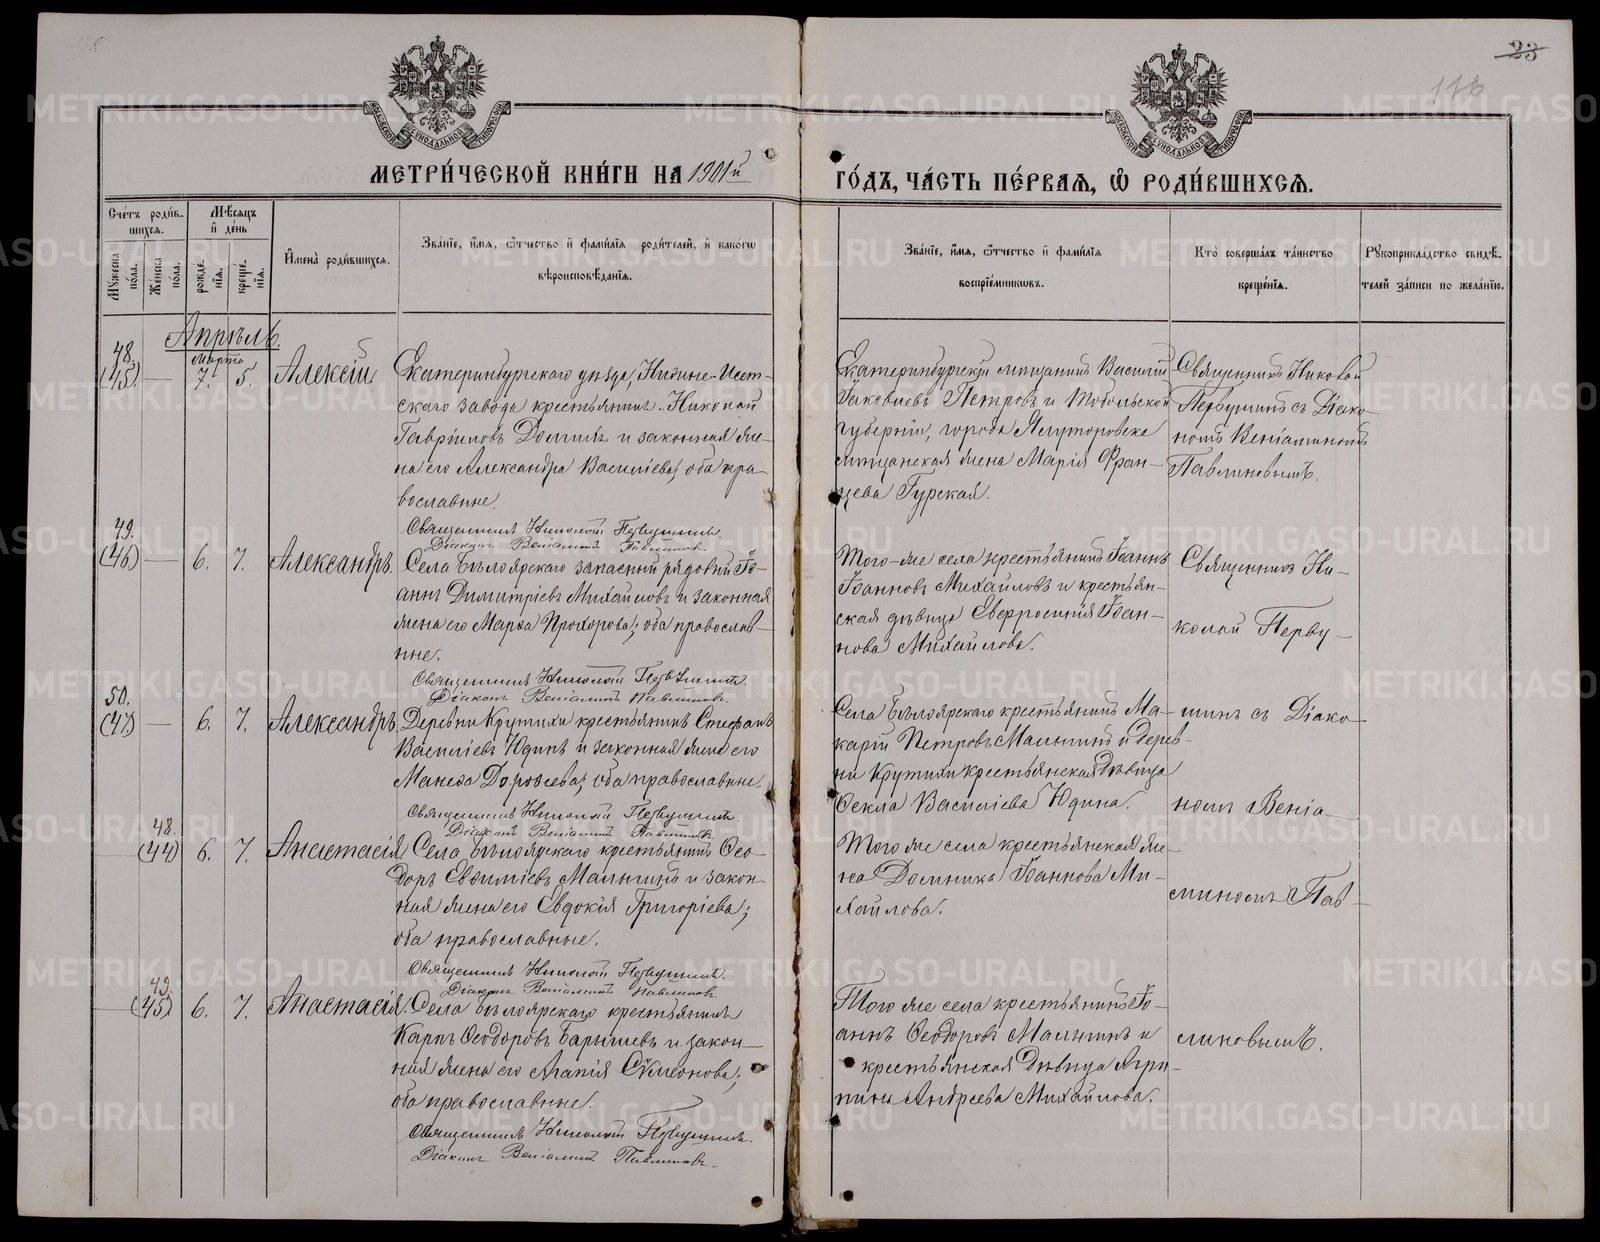 23
116
МЕТРИ́ЧЕСКОЙ КНИ́ГИ НА 1901й ГО́ДЪ, ЧА́СТЬ ПЕ́РВАЯ, Ѡ РОДИ́ВШИХСЯ.
Сче́тъ роди́в-
шихся.
Му́жеска по́ла.
Же́нска по́ла.
Мѣ́сяцъ
и де́нь
рожде́-
нїя.
креще́-
нїя.
И҆мена̀ роди́вшихся.
Зва́нїе, и҆́мя, ѻ҆́тчество и҆ фами́лїя роди́телей, и҆ како́гѡ
вѣроисповѣ́данїя.
Зва́нїе, и҆́мя, ѻ҆́тчество и҆ фами́лїя
воспрїе́мниковъ.
Кто̀ соверша́лъ та́инство
креще́нїя.
Рꙋкоприкла́дство свидѣ́-
телей за́писи по жела́нїю.
Апрѣль.
48.
(45)
—
Марта
7.
5.
Алексій
Екатеринбургскаго уѣзда, Нижне-Исет-
скаго завода крестьянинъ Николай
Гавріиловъ Долгихъ и законная же-
на его Александра Васильева, оба пра-
вославные.
Священникъ Николай Первушинъ.
Діаконъ Веніаминъ Павлиновъ.
Екатеринбургскій мѣщанинъ Василій
Іаковлевъ Петровъ и Тобольской
губерніи, города Ялуторовска
мѣщанская жена Марія Фран-
цева Гурская.
Священникъ Николай
Первушинъ съ Діако-
номъ Веніаминомъ
Павлиновымъ.
49.
(46)
—
6.
7.
Александръ.
Села Бѣлоярскаго запасный рядовой Іо-
аннъ Димитріевъ Михайловъ и законная
жена его Марѳа Прохорова; оба православ-
ные.
Священникъ Николай Первушинъ.
Діаконъ Веніаминъ Павлиновъ.
Того-же села крестьянинъ Іоаннъ
Іоанновъ Михайловъ и крестьян-
ская дѣвица Евфросинія Іоан-
нова Михайлова.
Священникъ Ни-
колай Перву-
50.
(47)
—
6.
7.
Александръ.
Деревни Крутихи крестьянинъ Стефанъ
Васильевъ Юдинъ и законная жена его
Манеѳа Дороѳеева; оба православные.
Священникъ Николай Первушинъ.
Діаконъ Веніаминъ Павлиновъ.
Села Бѣлоярскаго крестьянинъ Ма-
карій Петровъ Малыгинъ и дерев-
ни Крутихи крестьянская дѣвица
Ѳекла Васильева Юдина.
шинъ съ Діако-
номъ Веніа-
48.
(44)
6.
7.
Анастасія.
Села Бѣлоярскаго крестьянинъ Ѳео-
доръ Евѳиміевъ Малыгинъ и закон-
ная жена его Евдокія Григорьева;
оба православные.
Священникъ Николай Первушинъ.
Діаконъ Веніаминъ Павлиновъ.
Того же села крестьянская же-
на Домника Іоаннова Ми-
хайлова.
миномъ Пав-
49.
(45)
6.
7.
Анастасія.
Села Бѣлоярскаго крестьянинъ
Карпъ Ѳеодоровъ Барышевъ и закон-
ная жена его Агапія Сѵмеонова;
оба православные.
Священникъ Николай Первушинъ.
Діаконъ Веніаминъ Павлиновъ.
Того же села крестьянинъ Іо-
аннъ Ѳеодоровъ Малыгинъ и
крестьянская дѣвица Агри-
пина Андреева Михайлова.
линовымъ.
METRIKI.GASO-URAL.RU